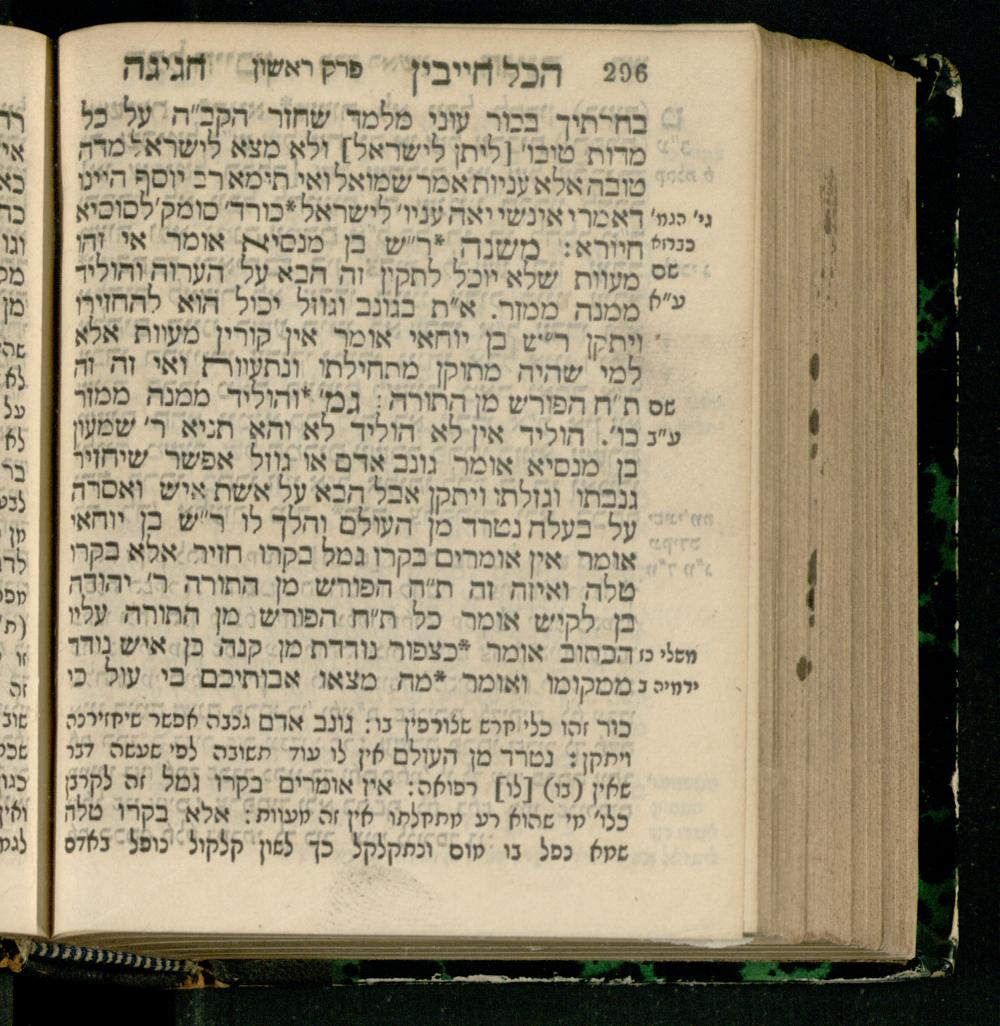 296 הכל חייבין פרק ראשון חגיגה
בחרתיך בכור עוני מלמד שחזר הקב״ה על כל
מדות טיבו׳ [ליתן לישראל] ולא מצא לישראל מדה
טובה אלא עניות אמר שמואל ואי תימא רב יוסף היינו
גי׳ הגמ׳ דאמרי אינשי יאה עניו׳ לישראל *כורד׳ סומק׳ לסוסיא
כברזא חיורא: משנה *ר״ש בן מנסיא אומר אי זהו
שם מעוות שלא יוכל לתקין זה הבא על הערוה והוליד
ע״א ממנה ממזר. א״ת בגונב וגוזל יכול הוא להחזירו
ויתקן ר״ש בן יוחאי אומר אין קורין מעוות אלא
למי שהיה מתוקן מתחילתו ונתעוות ואי זה זה
שם ת״ח הפורש מן התורה: גמ׳ *והוליד ממנה ממזר
ע״ב כו׳. הוליד אין לא הוליד לא והא תניא ר׳ שמעון
בן מנסיא אומר גונב אדם או גוזל אפשר שיחזיר
גנבתו וגזלתו ויתקן אבל הבא על אשת איש ואסרה
על בעלה נטרד מן העולם והלך לו ר״ש בן יוחאי
אומר אין אומרים בקרו גמל בקרו חזיר אלא בקרו
טלה ואיזה זה ת״ח הפורש מן התורה ר׳ יהודה
בן לקיש אומר כל ת״ח הפורש מן התורה עליו
משלי כז הכתוב אומר *כצפור נודדת מן קנה כן איש נודד
ירמיה ב ממקומו ואומר *מה מצאו אבותיכם בי עול כי
כור זהו כלי חרש שצורפין בו: גונב אדם גנבה אפשר שיחזירנה
ויתקן: נטרד מן העולם אין לו עוד תשובה לפי שעשה דבר
שאין (בו) [לו] רפואה: אין אומרים בקרו גמל זה לקרבן
כלו׳ מי שהוא רע מתחלתו אין זה מעוות: אלא בקרו טלה
שמא נפל בו מום ונתקלקל כך לשון קלקול נופל באדם